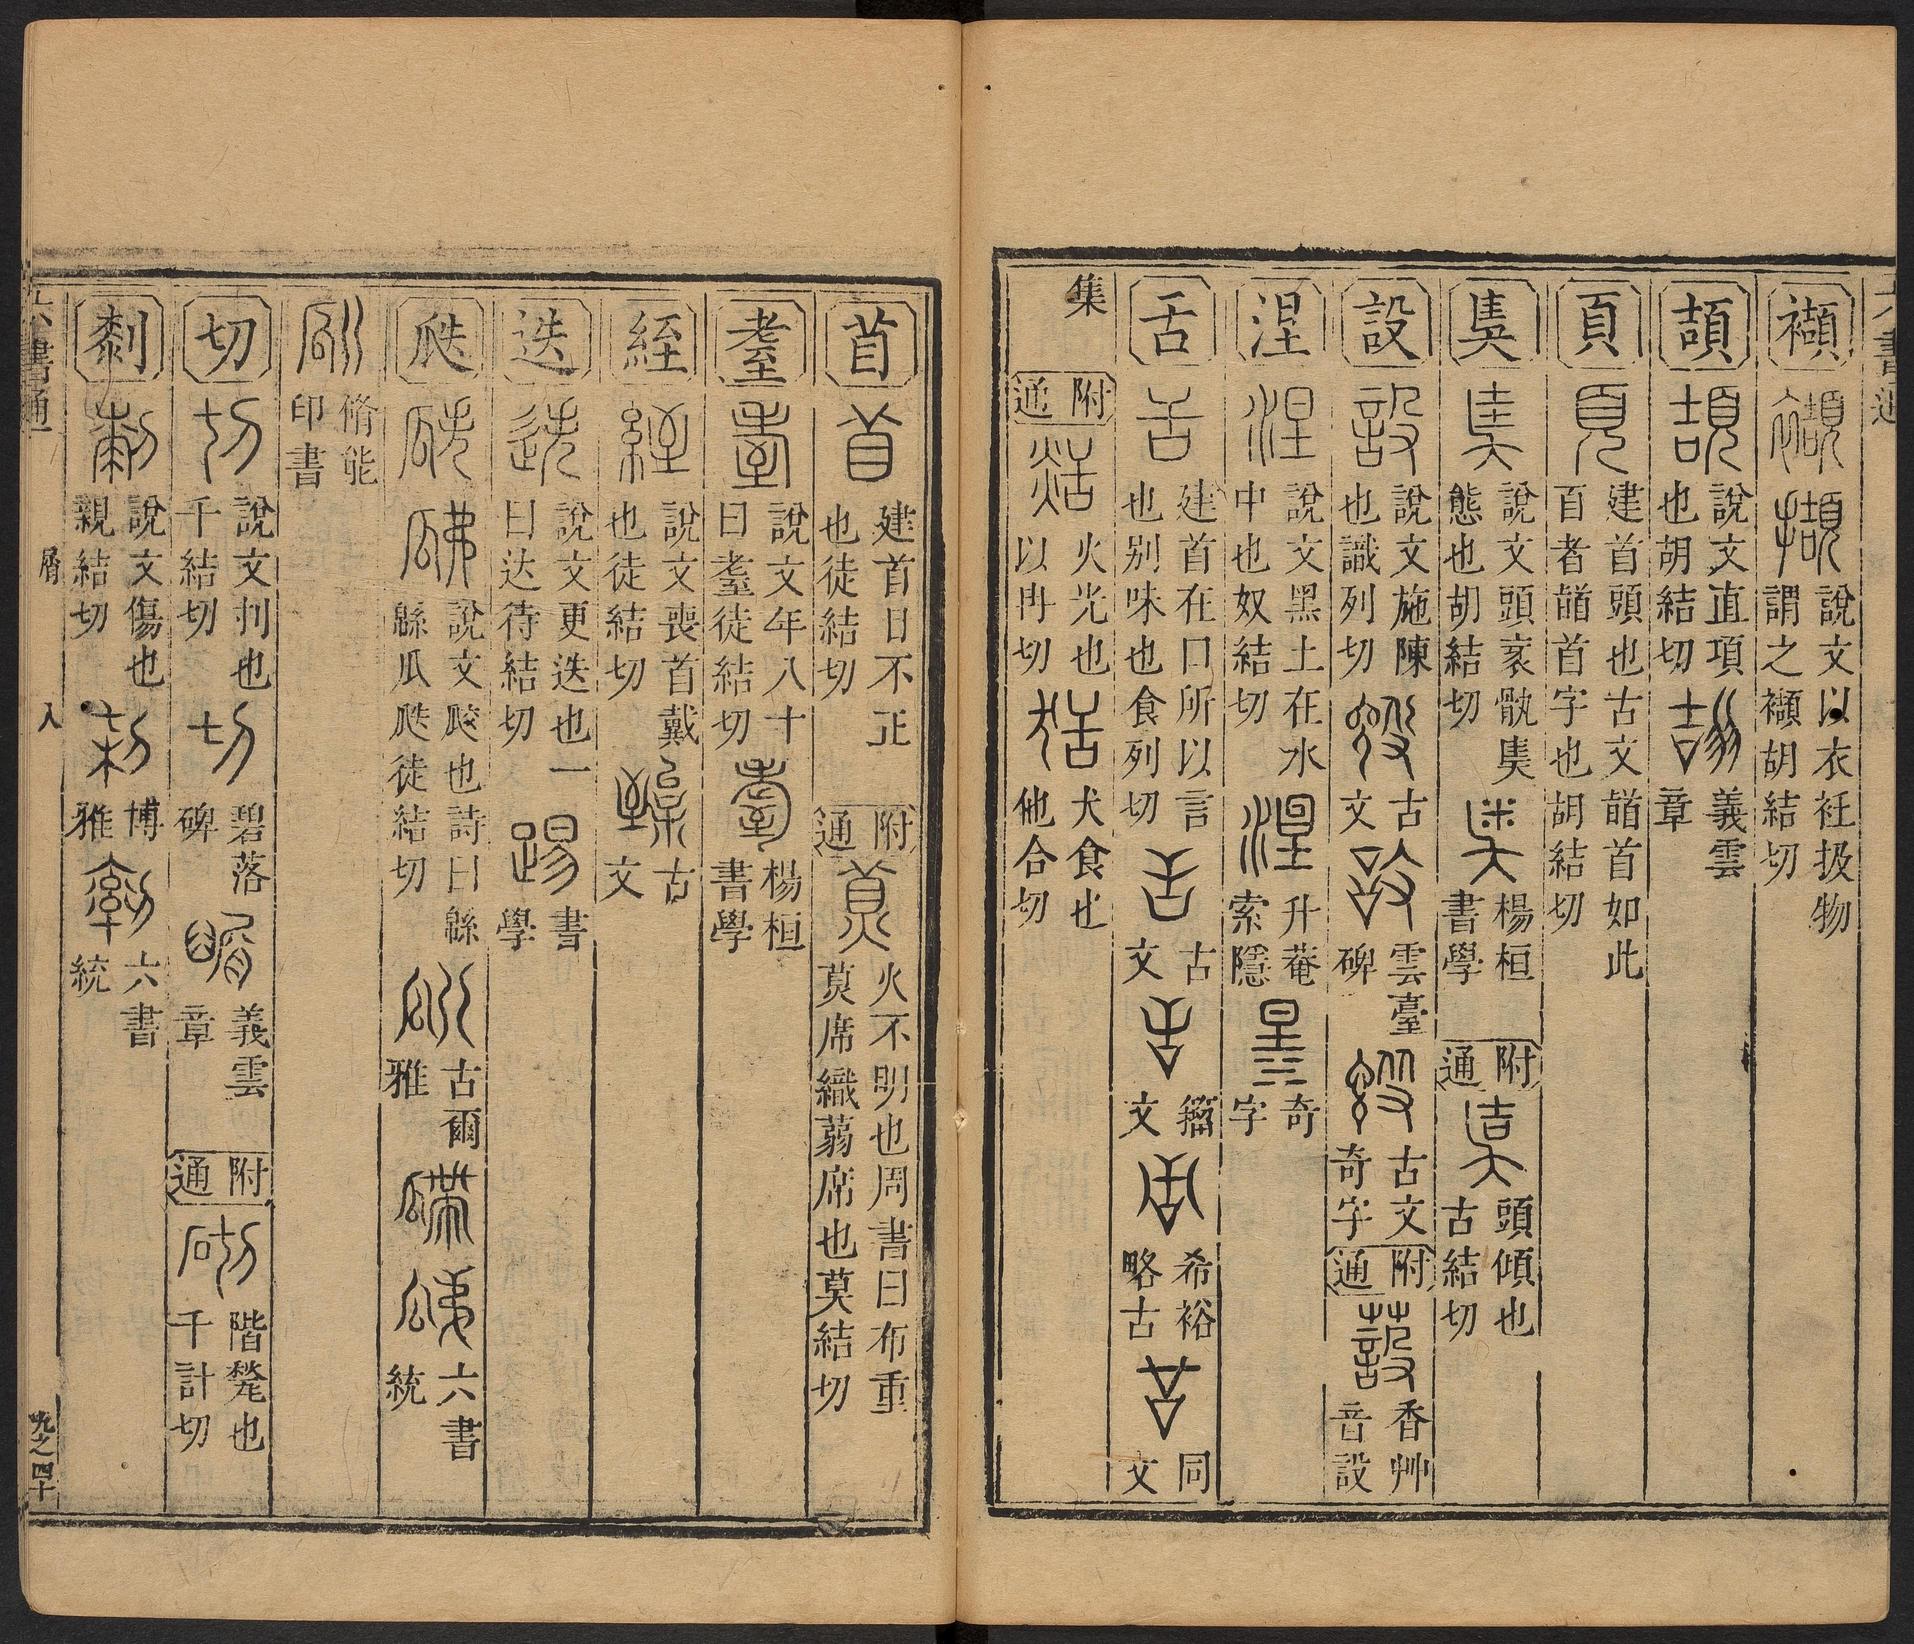 六書通
襭 說文以衣衽扱物謂之襭胡結切
頡 說文直項也胡結切 義雲章
頁 建首頭也古文䭫首如此百者䭫首字也胡結切
奊 說文頭衺骫奊態也胡結切 楊桓書學 附通 頭傾也古結切
設 說文施陳也識列切 古文 雲臺碑 古文奇字 附通 香艸音設
涅 說文黑土在水中也奴結切 升菴索隱 奇字
舌 建首在口所以言也别味也食列切 古文 籀文 希裕略古 同文
集 附通 火光也以冉切 犬食也他合切
苜 建首目不正也徒結切 附通 火不明也周書曰布重莫席織蒻席也莫結切
耋 說文年八十曰耋徒結切 楊桓書學
絰 說文喪首戴也徒結切 古文
迭 說文更迭也一曰达待結切 書學
瓞 說文㼎也詩曰緜緜瓜瓞徒結切 古爾雅 六書統
脩能印書
切 說文刌也千結切 碧落碑 義雲章 附通 階甃也千計切
剺 說文傷也親結切 博雅 六書統
六書通 屑 入 九之四十